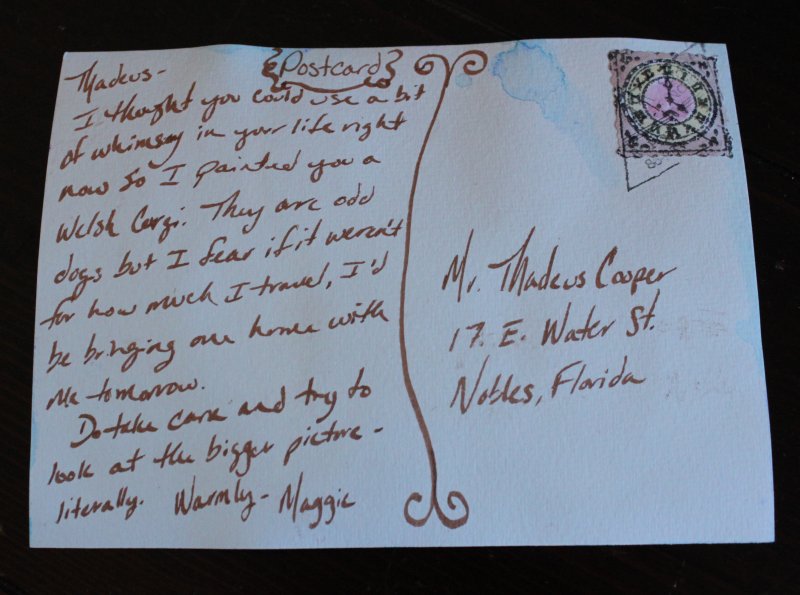 {Postcard}
Madeus-
I thought you could use a bit
of whimsy in your life right
now so I painted you a
Welsh Corgi. They are odd
dogs but I fear if it weren't
for how much I travel, I'd
be bringing one home with
me tomorrow.
Do take care and try to
look at the bigger picture -
literally. Warmly - Maggie
Mr. Madeus Cooper
17. E. Water St.
Nobles, Florida